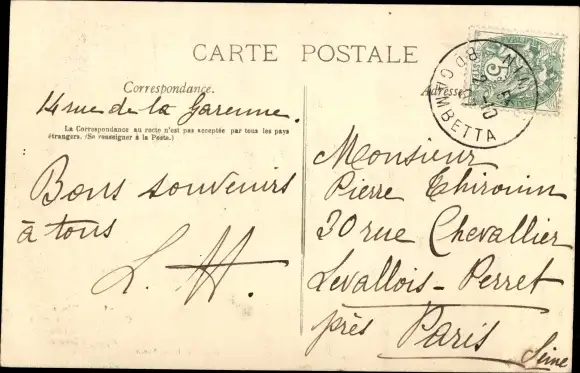 CARTE POSTALE
Correspondance.
14 rue de la Garenne.
La Correspondance au recto n'est pas acceptée par tous les pays
étrangers. (Se renseigner à la Poste.)
Bons souvenirs
à tous
L. H.
Adresse
Bd GAMBETTA
5
Monsieur
Pierre Thirouin
30 rue Chevallier
Levallois-Perret
près Paris
Seine